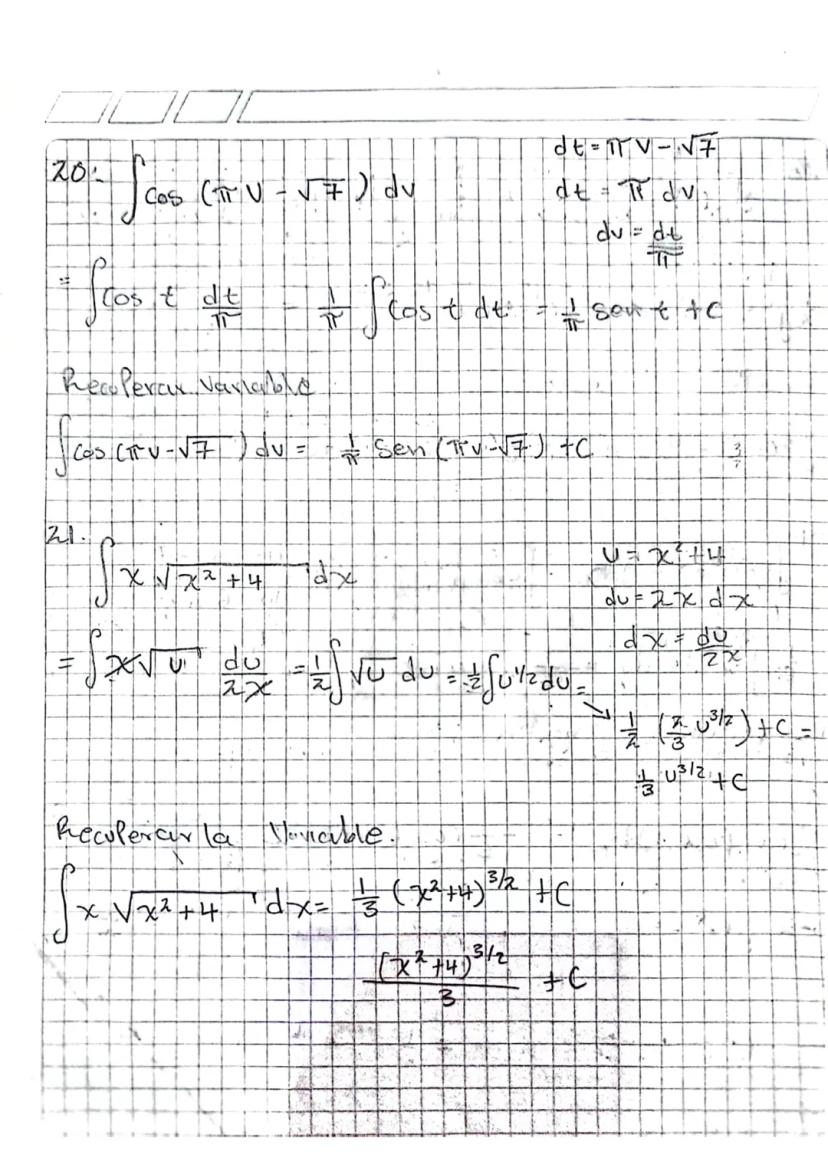 20. ∫ cos (π v - √7) dv
dt = π v - √7
dt = π dv
dv = dt/π
= ∫ cos t dt/π - 1/π ∫ cos t dt = 1/π sen t + c
Recuperar variable
∫ cos (π v - √7) dv = 1/π Sen (π v - √7) + C
21. ∫ x √x² + 4 dx
u = x² + 4
du = 2x dx
dx = du/2x
= ∫ x √u du/2x = 1/2 ∫ √u du = 1/2 ∫ u^1/2 du =
→ 1/2 (2/3 u^3/2) + C =
1/3 u^3/2 + C
Recuperar la Variable.
∫ x √x² + 4 dx = 1/3 (x² + 4)^3/2 + C
(x² + 4)^3/2 / 3 + C